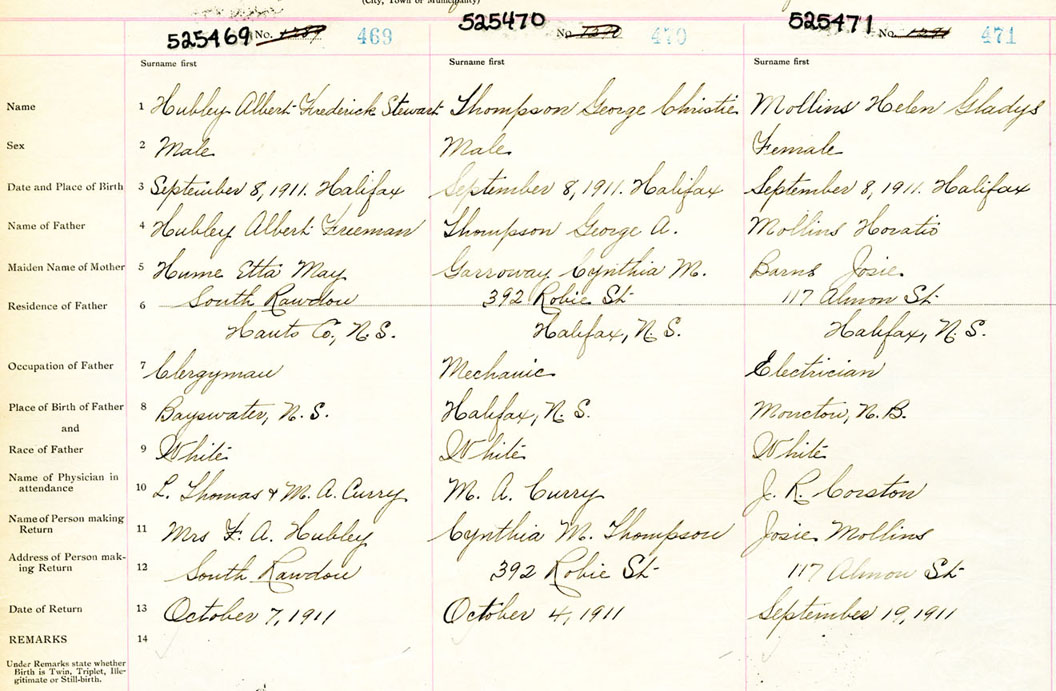 (City, Town or Municipality)
525469 No. 1289 469 525470 No. 1290 470 525471 No. 1291 471
Surname first Surname first Surname first
Name 1 Hubley Albert Frederick Stewart Thompson George Christie Mollins Helen Gladys
Sex 2 Male Male Female
Date and Place of Birth 3 September 8, 1911. Halifax September 8, 1911. Halifax September 8, 1911. Halifax
Name of Father 4 Hubley Albert Freeman Thompson George A. Mollins Horatio
Maiden Name of Mother 5 Hume Etta May Garroway Cynthia M. Barns Josie
Residence of Father 6 South Rawdon 392 Robie St 117 Almon St
Hants Co., N.S. Halifax, N.S. Halifax, N.S.
Occupation of Father 7 Clergyman Mechanic Electrician
Place of Birth of Father 8 Bayswater, N.S. Halifax, N.S. Moncton, N.B.
and
Race of Father 9 White White White
Name of Physician in
attendance 10 L. Thomas & M. A. Curry M. A. Curry J. R. Corston
Name of Person making
Return 11 Mrs F. A. Hubley Cynthia M. Thompson Josie Mollins
Address of Person mak-
ing Return 12 South Rawdon 392 Robie St 117 Almon St
Date of Return 13 October 7, 1911 October 4, 1911 September 19, 1911
REMARKS 14
Under Remarks state whether
Birth is Twin, Triplet, Ille-
gitimate or Still-birth.